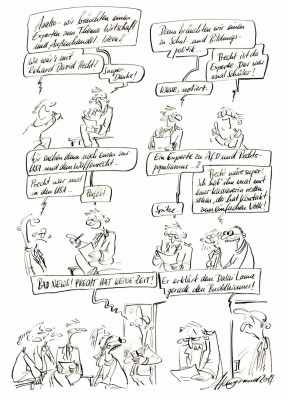 Anetta - wir bräuchten einen
Experten zum Thema Wirtschaft
und Außenhandel. Ideen?
Wie wär's mit
Richard David Precht!
Super
Danke!
Dann bräuchten wir einen
zu Schul- und Bildungs-
politik.
Precht ist da
Experte. Der war
mal Schüler!
Klasse, notiert.
Wir suchen dann noch einen zur
USA und dem Waffenrecht.
Precht war mal
in den USA...
Perfekt!
Ein Experte zu AfD und Rechts-
populismus...?
Precht wäre super!
Ich hab den mal mit
einer Kassiererin reden
sehen, der hat Kontakt
zum einfachen Volk!
Spitze.
BAD NEWS! PRECHT HAT KEINE ZEIT!
Er erklärt dem Dalai Lama
gerade den Buddhismus!